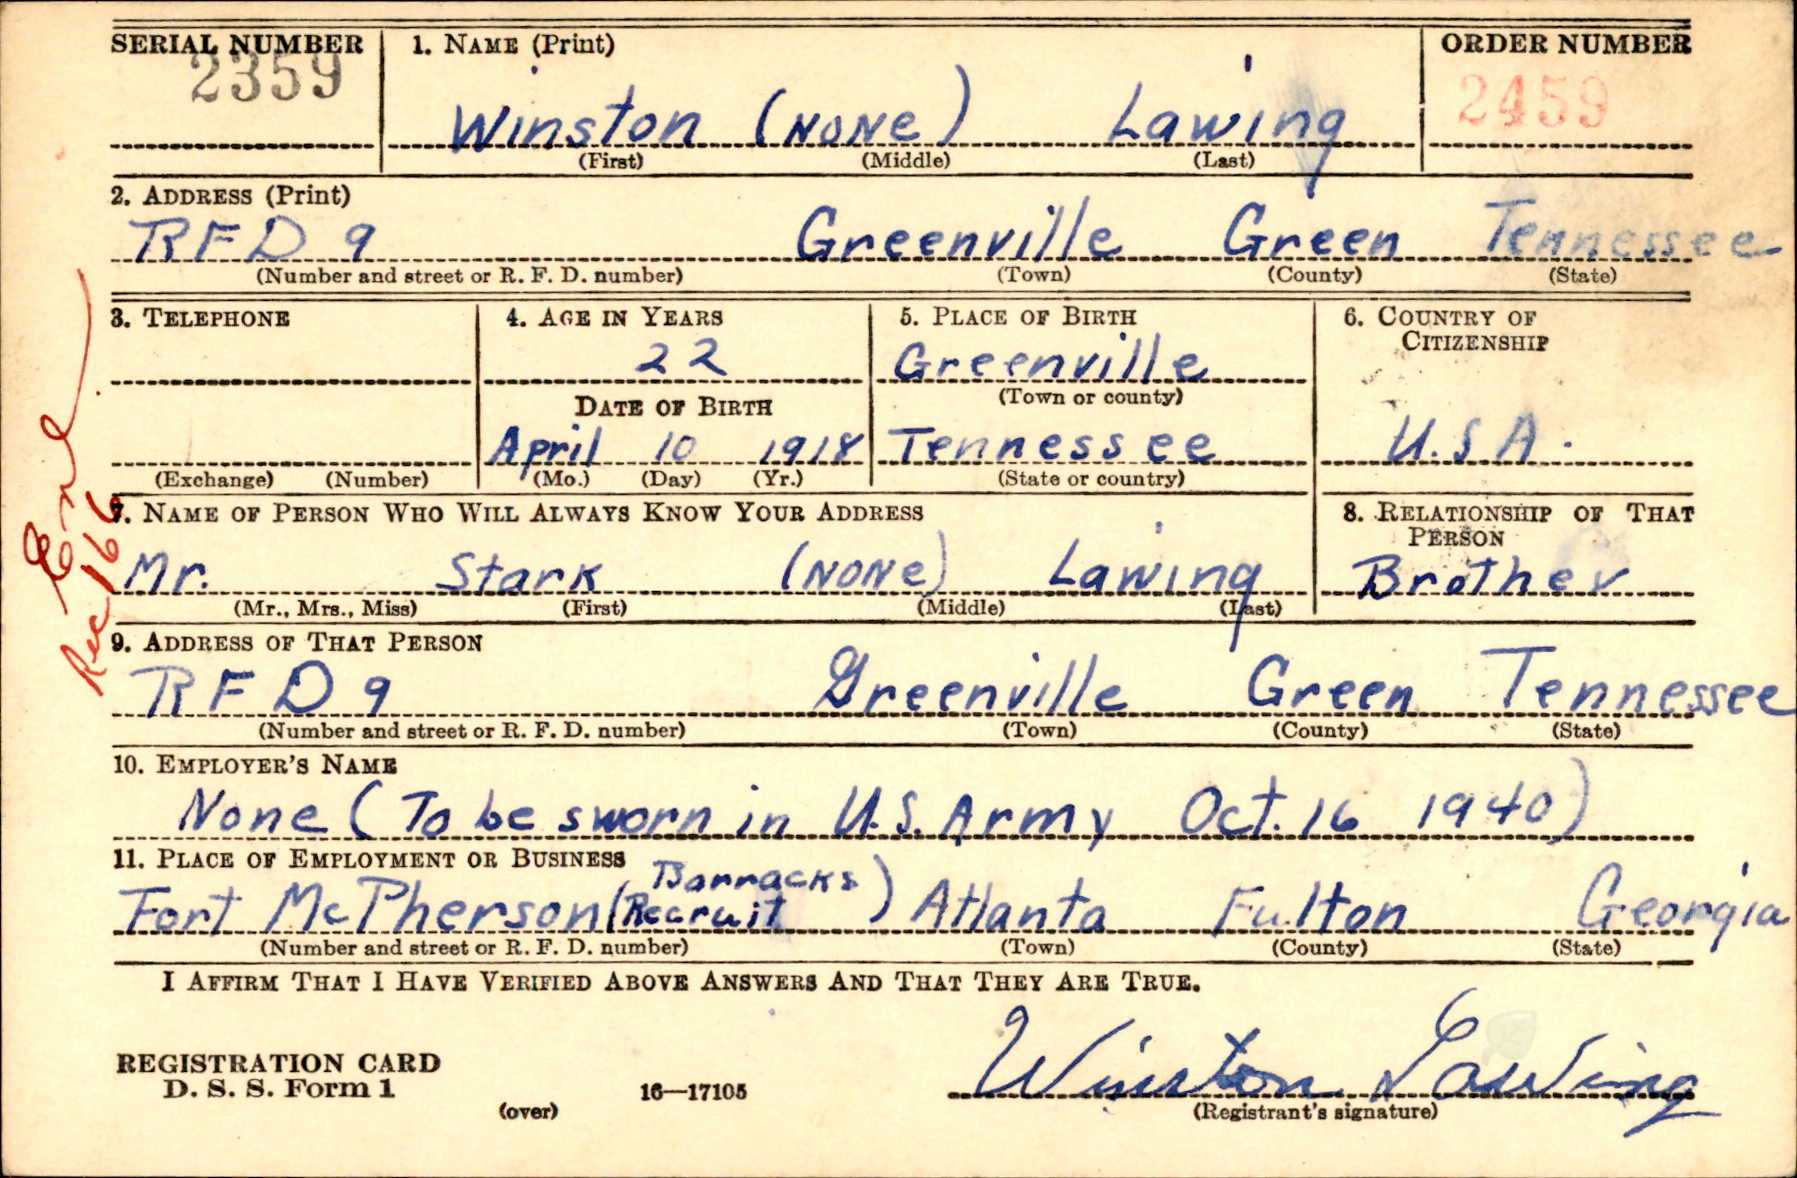 SERIAL NUMBER 1. NAME (Print) ORDER NUMBER
2359 2459
Winston (NONE) Lawing
(First) (Middle) (Last)
2. ADDRESS (Print)
RFD 9 Greenville Green Tennessee
(Number and street or R. F. D. number) (Town) (County) (State)
3. TELEPHONE 4. AGE IN YEARS 5. PLACE OF BIRTH 6. COUNTRY OF CITIZENSHIP
22 Greenville
DATE OF BIRTH (Town or county)
April 10 1918 Tennessee U.S.A.
(Exchange) (Number) (Mo.) (Day) (Yr.) (State or country)
7. NAME OF PERSON WHO WILL ALWAYS KNOW YOUR ADDRESS 8. RELATIONSHIP OF THAT PERSON
Mr. Stark (NONE) Lawing Brother
(Mr., Mrs., Miss) (First) (Middle) (Last)
9. ADDRESS OF THAT PERSON
RFD 9 Greenville Green Tennessee
(Number and street or R. F. D. number) (Town) (County) (State)
10. EMPLOYER'S NAME
None (To be sworn in U.S. Army Oct. 16 1940)
11. PLACE OF EMPLOYMENT OR BUSINESS
Fort McPherson (Recruit Barracks) Atlanta Fulton Georgia
(Number and street or R. F. D. number) (Town) (County) (State)
I AFFIRM THAT I HAVE VERIFIED ABOVE ANSWERS AND THAT THEY ARE TRUE.
REGISTRATION CARD
D. S. S. Form 1 16—17105 Winston Lawing
(over) (Registrant's signature)
Rec 166